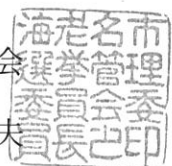 海老名市
選挙管理
委員会委
員長之印
会
夫